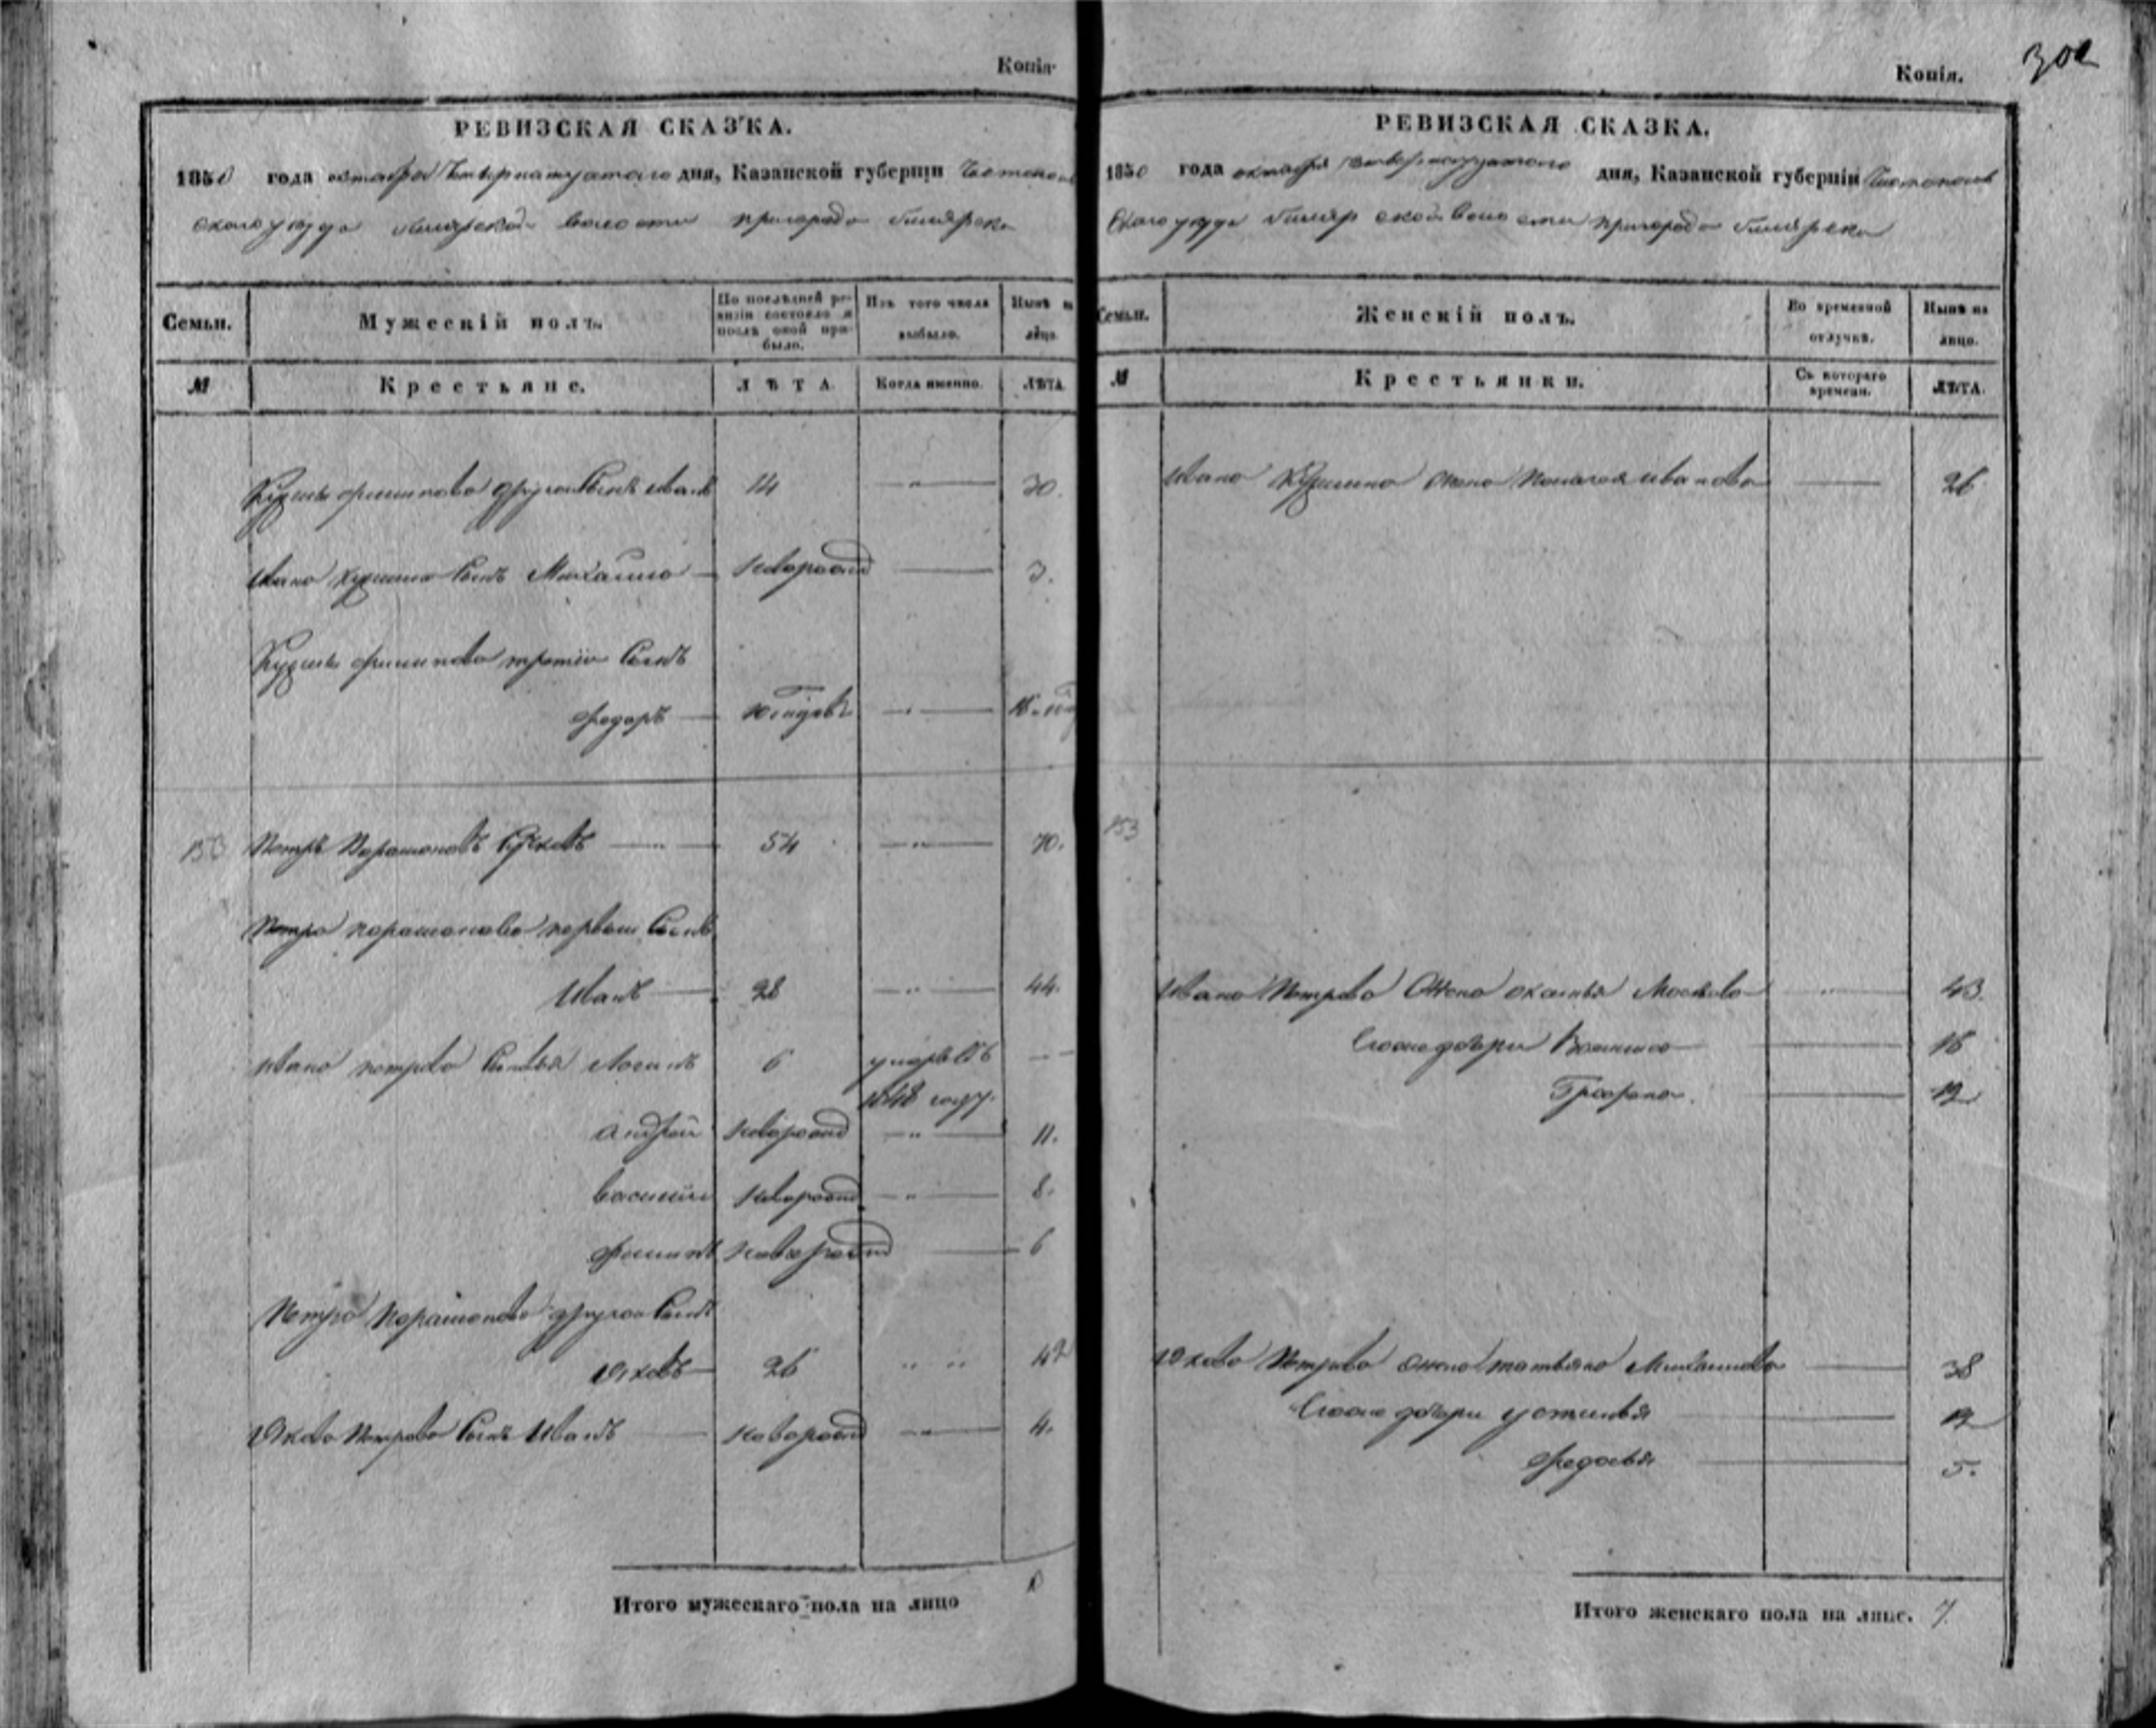 Копія
РЕВИЗСКАЯ СКАЗКА.
1850 года октября Четырнатцатаго дня, Казанской губерніи Чистополь
скаго уезда билярской волости пригорода билярска
Семьи.
Мужескій полъ.
По послѣдней ре-
визіи состояло и
послѣ оной при-
было.
Изъ того числа
выбыло.
Нынѣ на
лицо.
№
Крестьяне.
ЛѢТА
Когда именно.
ЛѢТА
филипова другой Сынъ иванъ 14 30.
Ивана Сынъ Михайло новорожд 3.
филипова третий Сынъ
федоръ
Петръ Парамоновъ 54 70.
Петра парамонова первый Сынъ
Иванъ 28 44.
Ивана петрова Сыновья Логинъ 6 умеръ въ
1848 году.
андрей новорожд 11.
василий новорожд 8.
филипъ новорожд 6
Петра Парамонова другой Сынъ
Яковъ 26 42
Якова Петрова Сынъ Иванъ новорожд 4.
Итого мужескаго пола на лицо
Копія.
302
РЕВИЗСКАЯ СКАЗКА.
1850 года октября Четырнатцатаго дня, Казанской губерніи Чистополь
скаго уезда билярской волости пригорода билярска
Семьи.
Женскій полъ.
Во временной
отлучкѣ.
Нынѣ на
лицо.
№
Крестьянки.
Съ котораго
времени.
ЛѢТА.
Ивана жена Пелагея иванова 26
153
Ивана Петрова жена 43.
дочери 16
12
Якова Петрова жена татьяна Михайлова 38
дочери устинья 12
федосья 5.
Итого женскаго пола на лицо. 7.